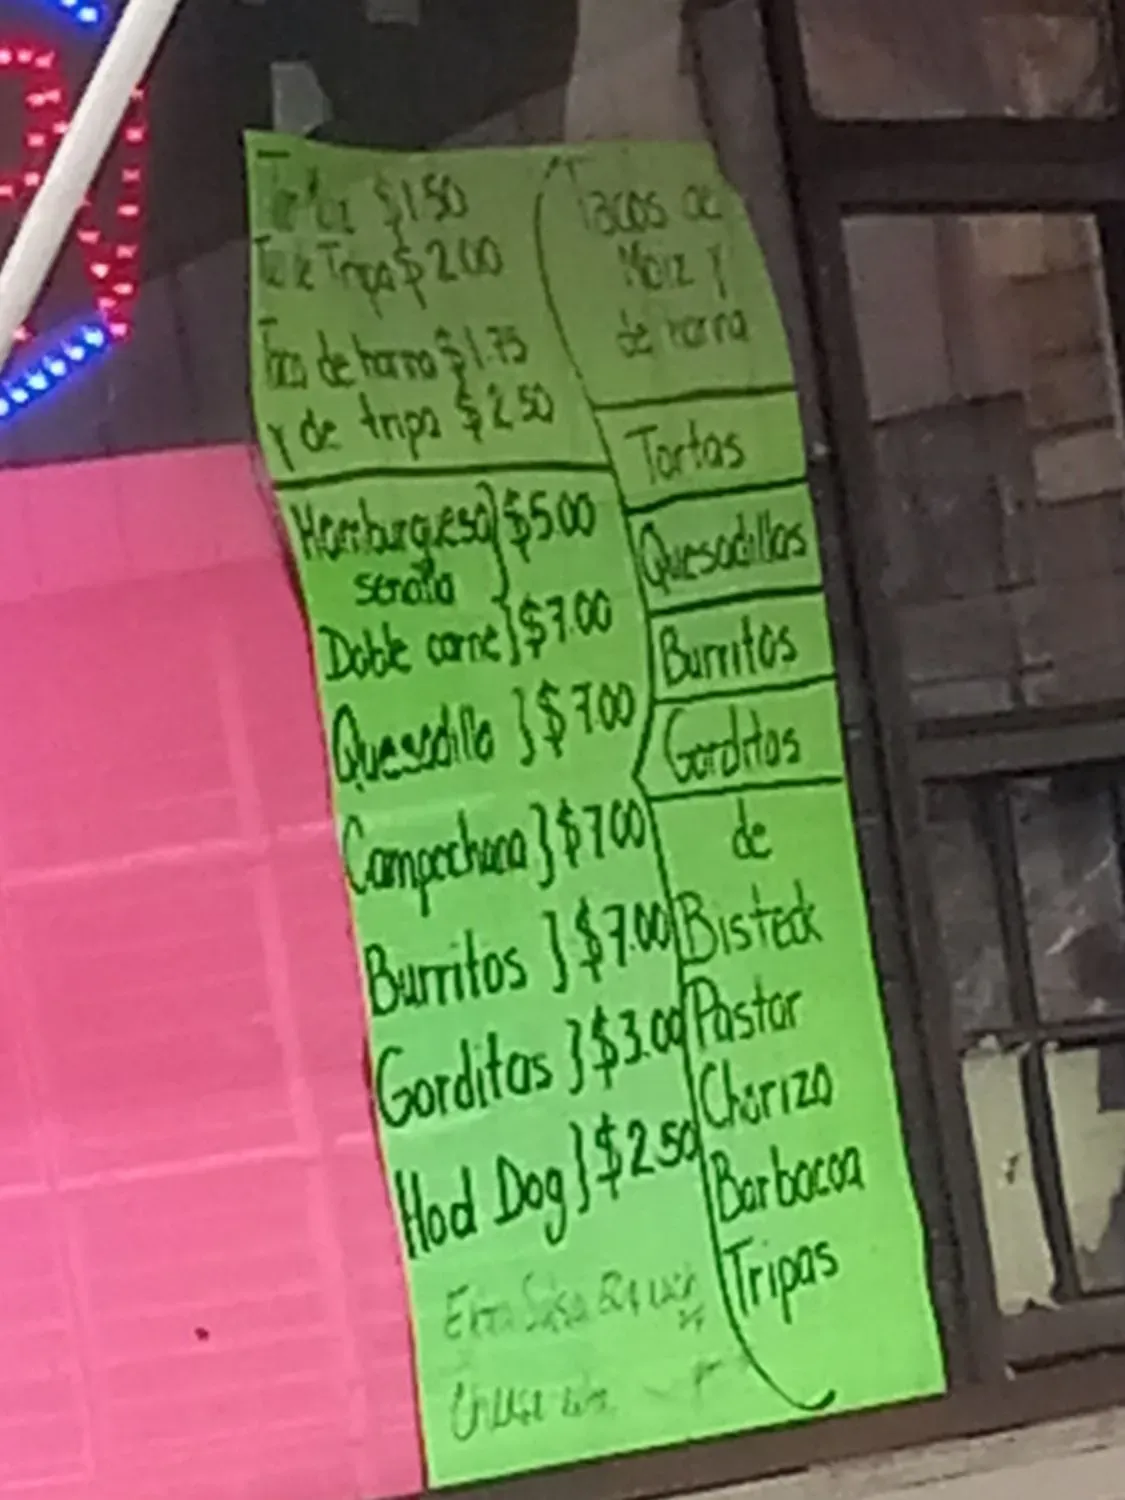 $1.50
Tripa $2.00
Taco de harina $1.75
y de tripa $2.50
Hamburguesa } $5.00
senalla
Doble carne } $7.00
Quesadilla } $7.00
Campechana } $7.00
Burritos } $7.00
Gorditas } $3.00
Hod Dog } $2.50
Extra Salsa
Tacos de
Maiz y
de harina
Tortas
Quesadillas
Burritos
Gorditas
de
Bisteck
Pastor
Chorizo
Barbacoa
Tripas